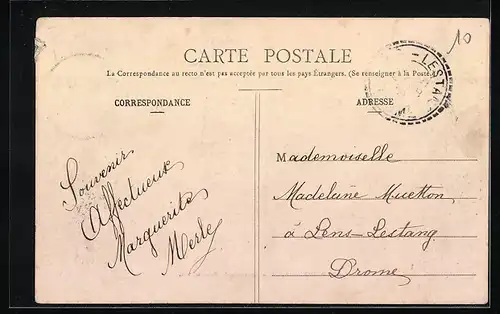 10
CARTE POSTALE
La Correspondance au recto n'est pas acceptée par tous les pays Étrangers. (Se renseigner à la Poste.)
CORRESPONDANCE
ADRESSE
LESTANG
Souvenir
Affectueux
Marguerite
Merle
Mademoiselle
Madeleine Muetton
à Lens-Lestang
Drome